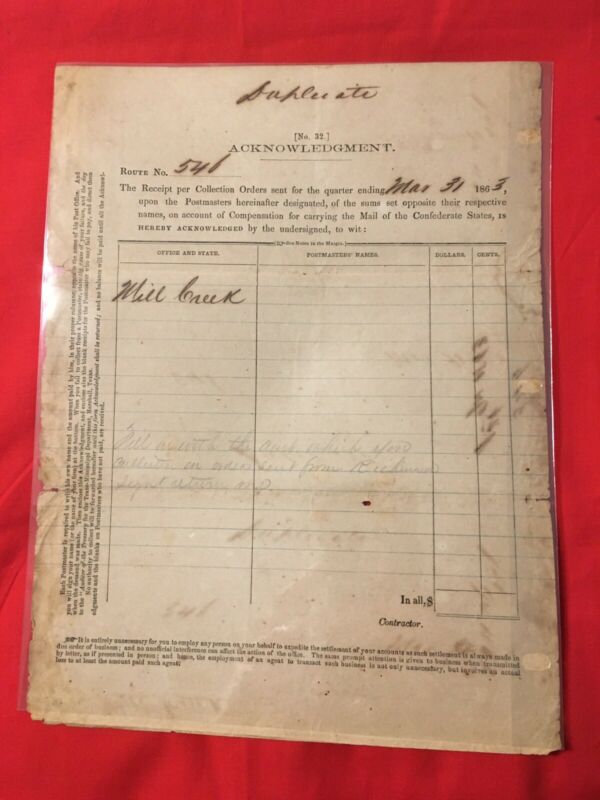 Duplicate
[No. 32.]
ACKNOWLEDGMENT.
ROUTE NO. 546
The Receipt per Collection Orders sent for the quarter ending Mar 31 1863,
upon the Postmasters hereinafter designated, of the sums set opposite their respective
names, on account of Compensation for carrying the Mail of the Confederate States, IS
HEREBY ACKNOWLEDGED by the undersigned, to wit:
Notes in the Margin.
OFFICE AND STATE. POSTMASTERS' NAMES. DOLLARS. CENTS.
Mill Creek
Fill in with the amt which you
collected on orders sent from Richmond
Sign & return
In all, $
Contractor.
It is entirely unnecessary for you to employ any person on your behalf to expedite the settlement of your accounts as such settlement is always made in
due order of business; and no unofficial interference can affect the action of the office. The same prompt attention is given to business when transmitted
by letter, as if presented in person; and hence, the employment of an agent to transact such business is not only unnecessary, but involves an actual
loss to at least the amount paid such agent.
Each Postmaster is required to write his own name and the amount paid by him, in their proper columns, opposite the name of his Post Office. And
you will sign your name (or the name of your firm) at the bottom. When you fail to collect from a Postmaster, state the cause of your failure, and the day
when the demand was made. Then endorse this Acknowledgment, and enclose also the blank receipts for the Postmaster who may fail to pay, and direct them
to the "Auditor of the Treasury for the Trans-Mississippi Department, Marshall, Texas.
No authority to collect will be forwarded hereafter until this form Acknowledgment shall be returned; and no balance will be paid until all the Acknowl-
edgments and the blanks on Postmasters who have not paid, are received.